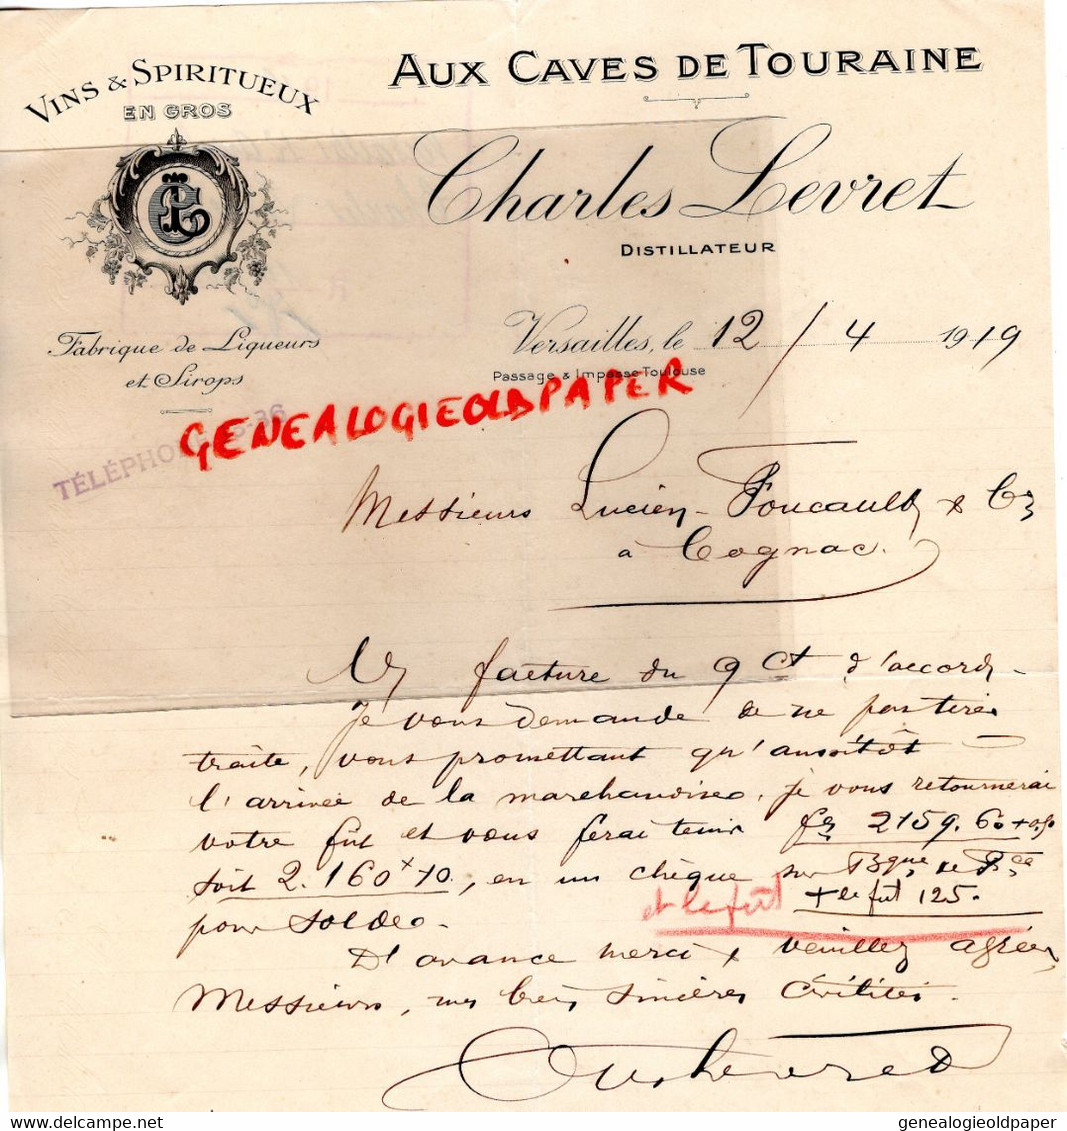 VINS & SPIRITUEUX
EN GROS
AUX CAVES DE TOURAINE
Charles Levret
DISTILLATEUR
Fabrique de Liqueurs
et Sirops
Versailles, le 12 / 4 1919
Passage & Impasse Toulouse
GENEALOGIEOLDPAPER
TÉLÉPHONE
Messieurs Lucien-Foucauld & Cie
à Cognac.
facture du 9 ct d'accord
Je vous demande de ne pas tirer
traite, vous promettant qu'aussitôt
l'arrivée de la marchandise, je vous retournerai
votre fût et vous ferai tenir fcs 2159.60 + 0,50
soit 2.160 x 10, en un chèque sur Bque de Fce
et le fût + le fût 125.
pour solde.
D'avance merci & veuillez agréer,
Messieurs, mes bien sincères civilités.
Levret
genealogieoldpaper